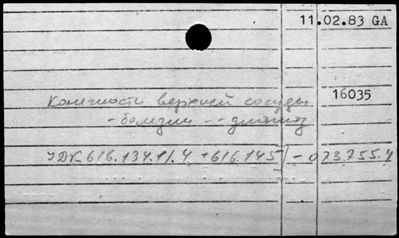 11.02.83 GA
16035
Конечности верхней сосуды
- болезни -- диагноз
УДК 616.134.1/.4 + 616.145 - 073.755.4